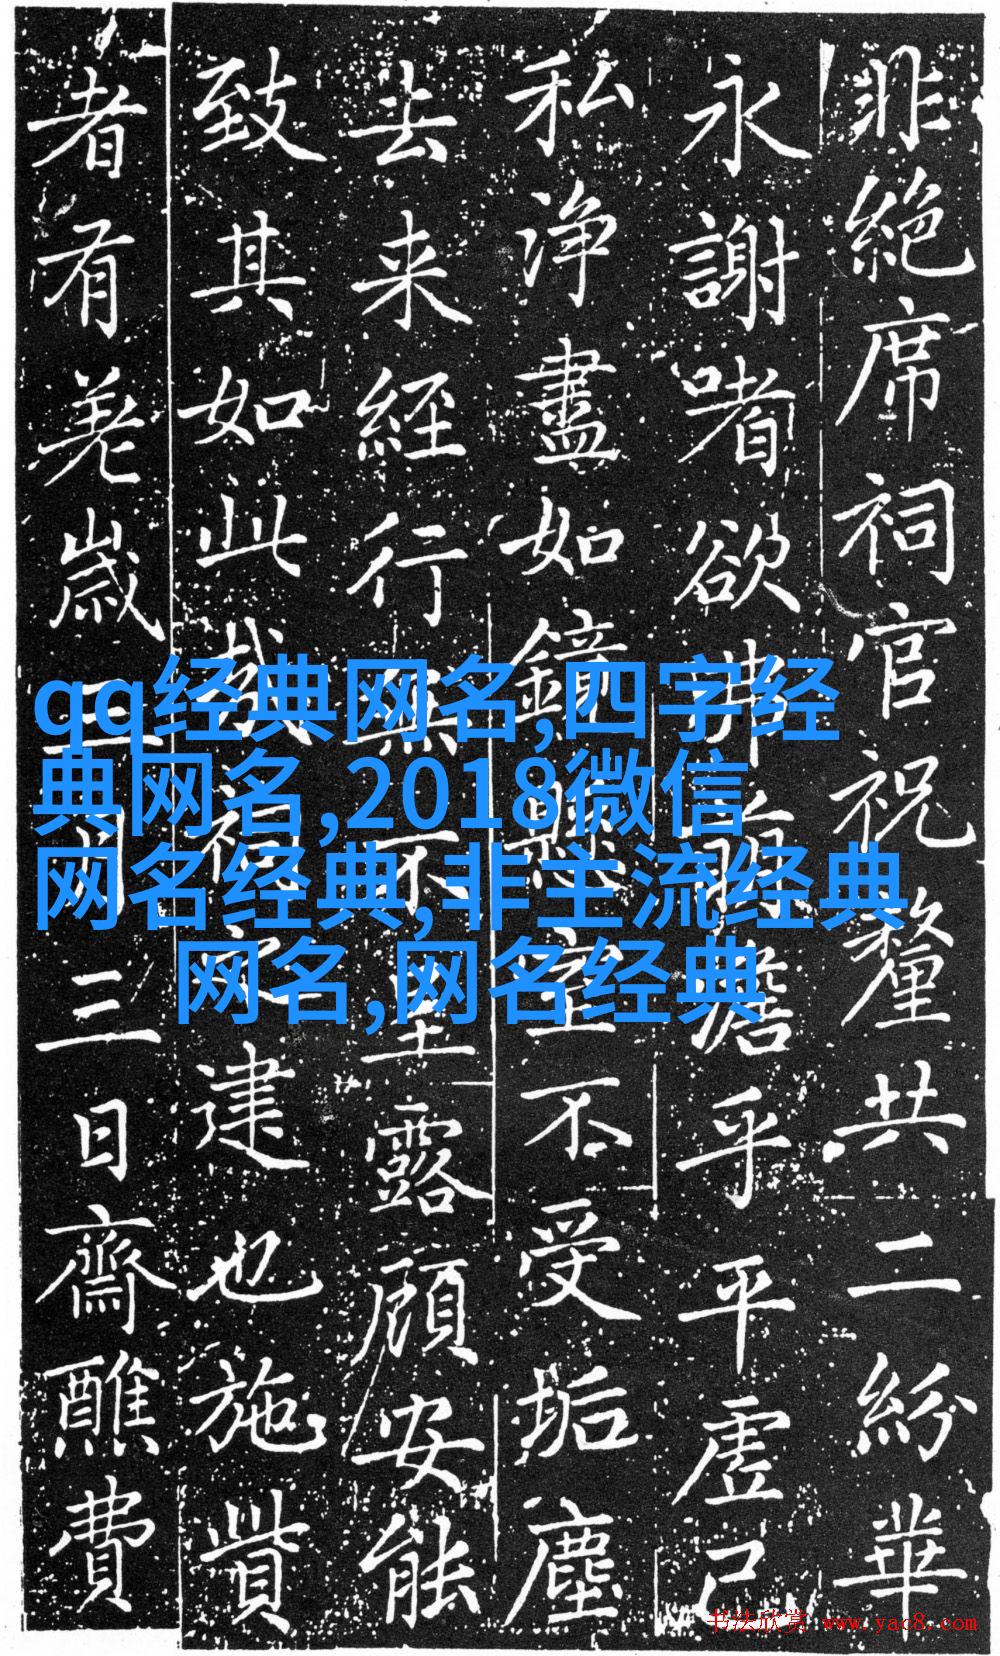 非絕席祠官祝釐共二紛華
永謝嗜欲乎平虛己
私淨盡如鏡不受垢塵
去来經行無不露顧安能
致其如此哉建也施貲
者有羌歲三日齋醮費
qq经典网名,四字经
典网名,2018微信
网名经典,非主流经典
网名,网名经典
书法欣赏 www.yac8.com